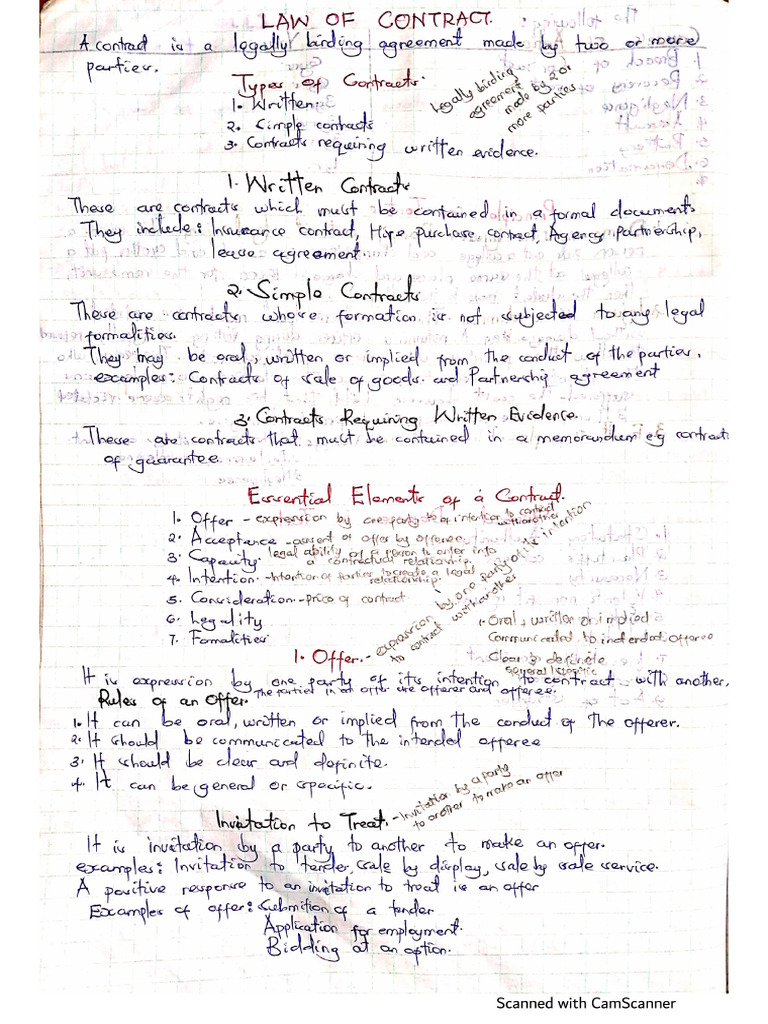 LAW OF CONTRACT.
A contract is a legally binding agreement made by two or more
parties.
Types of Contracts.
legally binding
agreement
made by 2 or
more parties
1. Written
2. Simple contracts
3. Contracts requiring written evidence.
1. Written Contracts
These are contracts which must be contained in a formal documents
They include: Insurance contract, Hire purchase contract, Agency partnership,
lease agreement.
2. Simple Contracts
These are contracts whose formation is not subjected to any legal
formalities.
They may be oral, written or implied from the conduct of the parties,
examples: Contracts of sale of goods and Partnership agreement
3. Contracts Requiring Written Evidence.
These are contracts that must be contained in a memorandum eg contract
of guarantee.
Essential Elements of a Contract.
1. Offer - expression by one party of intention to contract
with another
2. Acceptance - assent of offer by offeree
3. Capacity. legal ability of a person to enter into
a contractual relationship.
4. Intention. - Intention of parties to create a legal
relationship.
5. Consideration. - price of contract
6. Legality
7. Fomalities
expression by one party of its intention
to contract with another
1. Oral, written or implied
Communicated to intended offeree
Clear & definite
general / specific
1. Offer. -
It is expression by one party of its intention to contract with another.
The parties in an offer are offerer and offeree.
Rules of an Offer.
1. It can be oral, written or implied from the conduct of the offerer.
2. It should be communicated to the intended offeree
3. It should be clear and definite.
4. It can be general or specific.
Invitation to Treat. - Invitation by a party
to another to make an offer
It is invitation by a party to another to make an offer.
examples: Invitation to tender, sale by display, sale by sale service.
A positive response to an invitation to treat is an offer
Examples of offer: Submition of a tender
Application for employment.
Bidding at an option.
Scanned with CamScanner